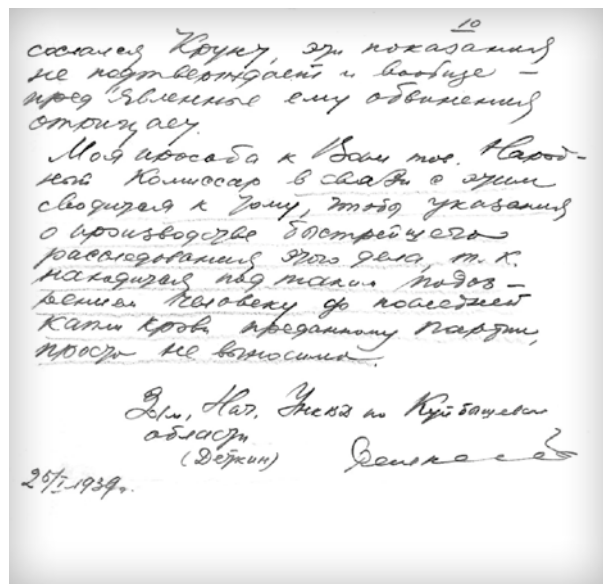 10
сослался Крунт, эти показания
не подтверждает и вообще –
пред'явленные ему обвинения
отрицает.
Моя просьба к Вам тов. Народ-
ный Комиссар в связи с этим
сводится к тому, чтобы указания
о производстве быстрейшего
расследования этого дела, т.к.
находится под таким подоз-
рением человеку до последней
капли крови преданному партии,
просто не выносимо.
Зам. Нач. УНКВД по Куйбышевск
области
(Деткин)
25/I-1939г.